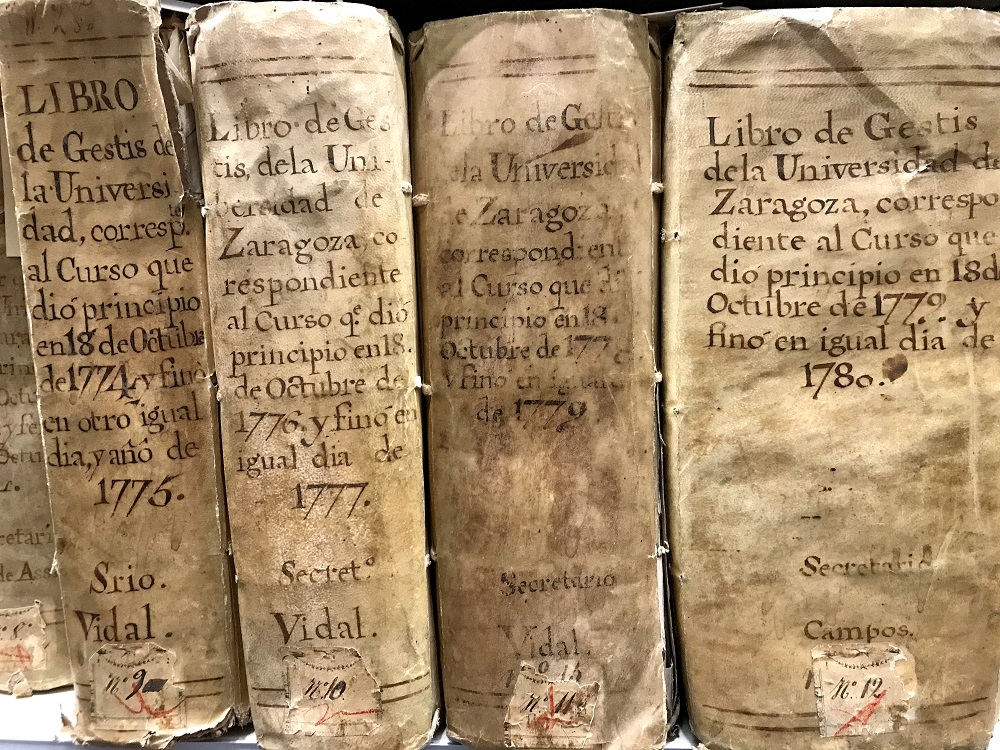 LIBRO
de Gestis de
la Universi
dad, corresp.te
al Curso que
dió principio
en 18 de Octubre
de 1774 y finó
en otro igual
dia, y año de
1775.
Srio.
Vidal.
Nº 9
Libro de Ges
tis, de la Uni-
bersidad de
Zaragoza, co-
respondiente
al Curso q.e dió
principio en 18.
de Octubre de
1776. y finó en
igual dia de
1777.
Secret.º
Vidal.
Nº 10
Libro de Gestis
de la Universidad
de Zaragoza
correspondient
al Curso que di
principio en 18.
Octubre de 177
y fino en igual
de 1779.
Secretario
Vidal.
Nº 11
Libro de Gestis
de la Universidad de
Zaragoza, correspo
diente al Curso que
dió principio en 18 d
Octubre de 1779. y
finó en igual dia de
1780.
Secretario
Campos.
Nº. 12